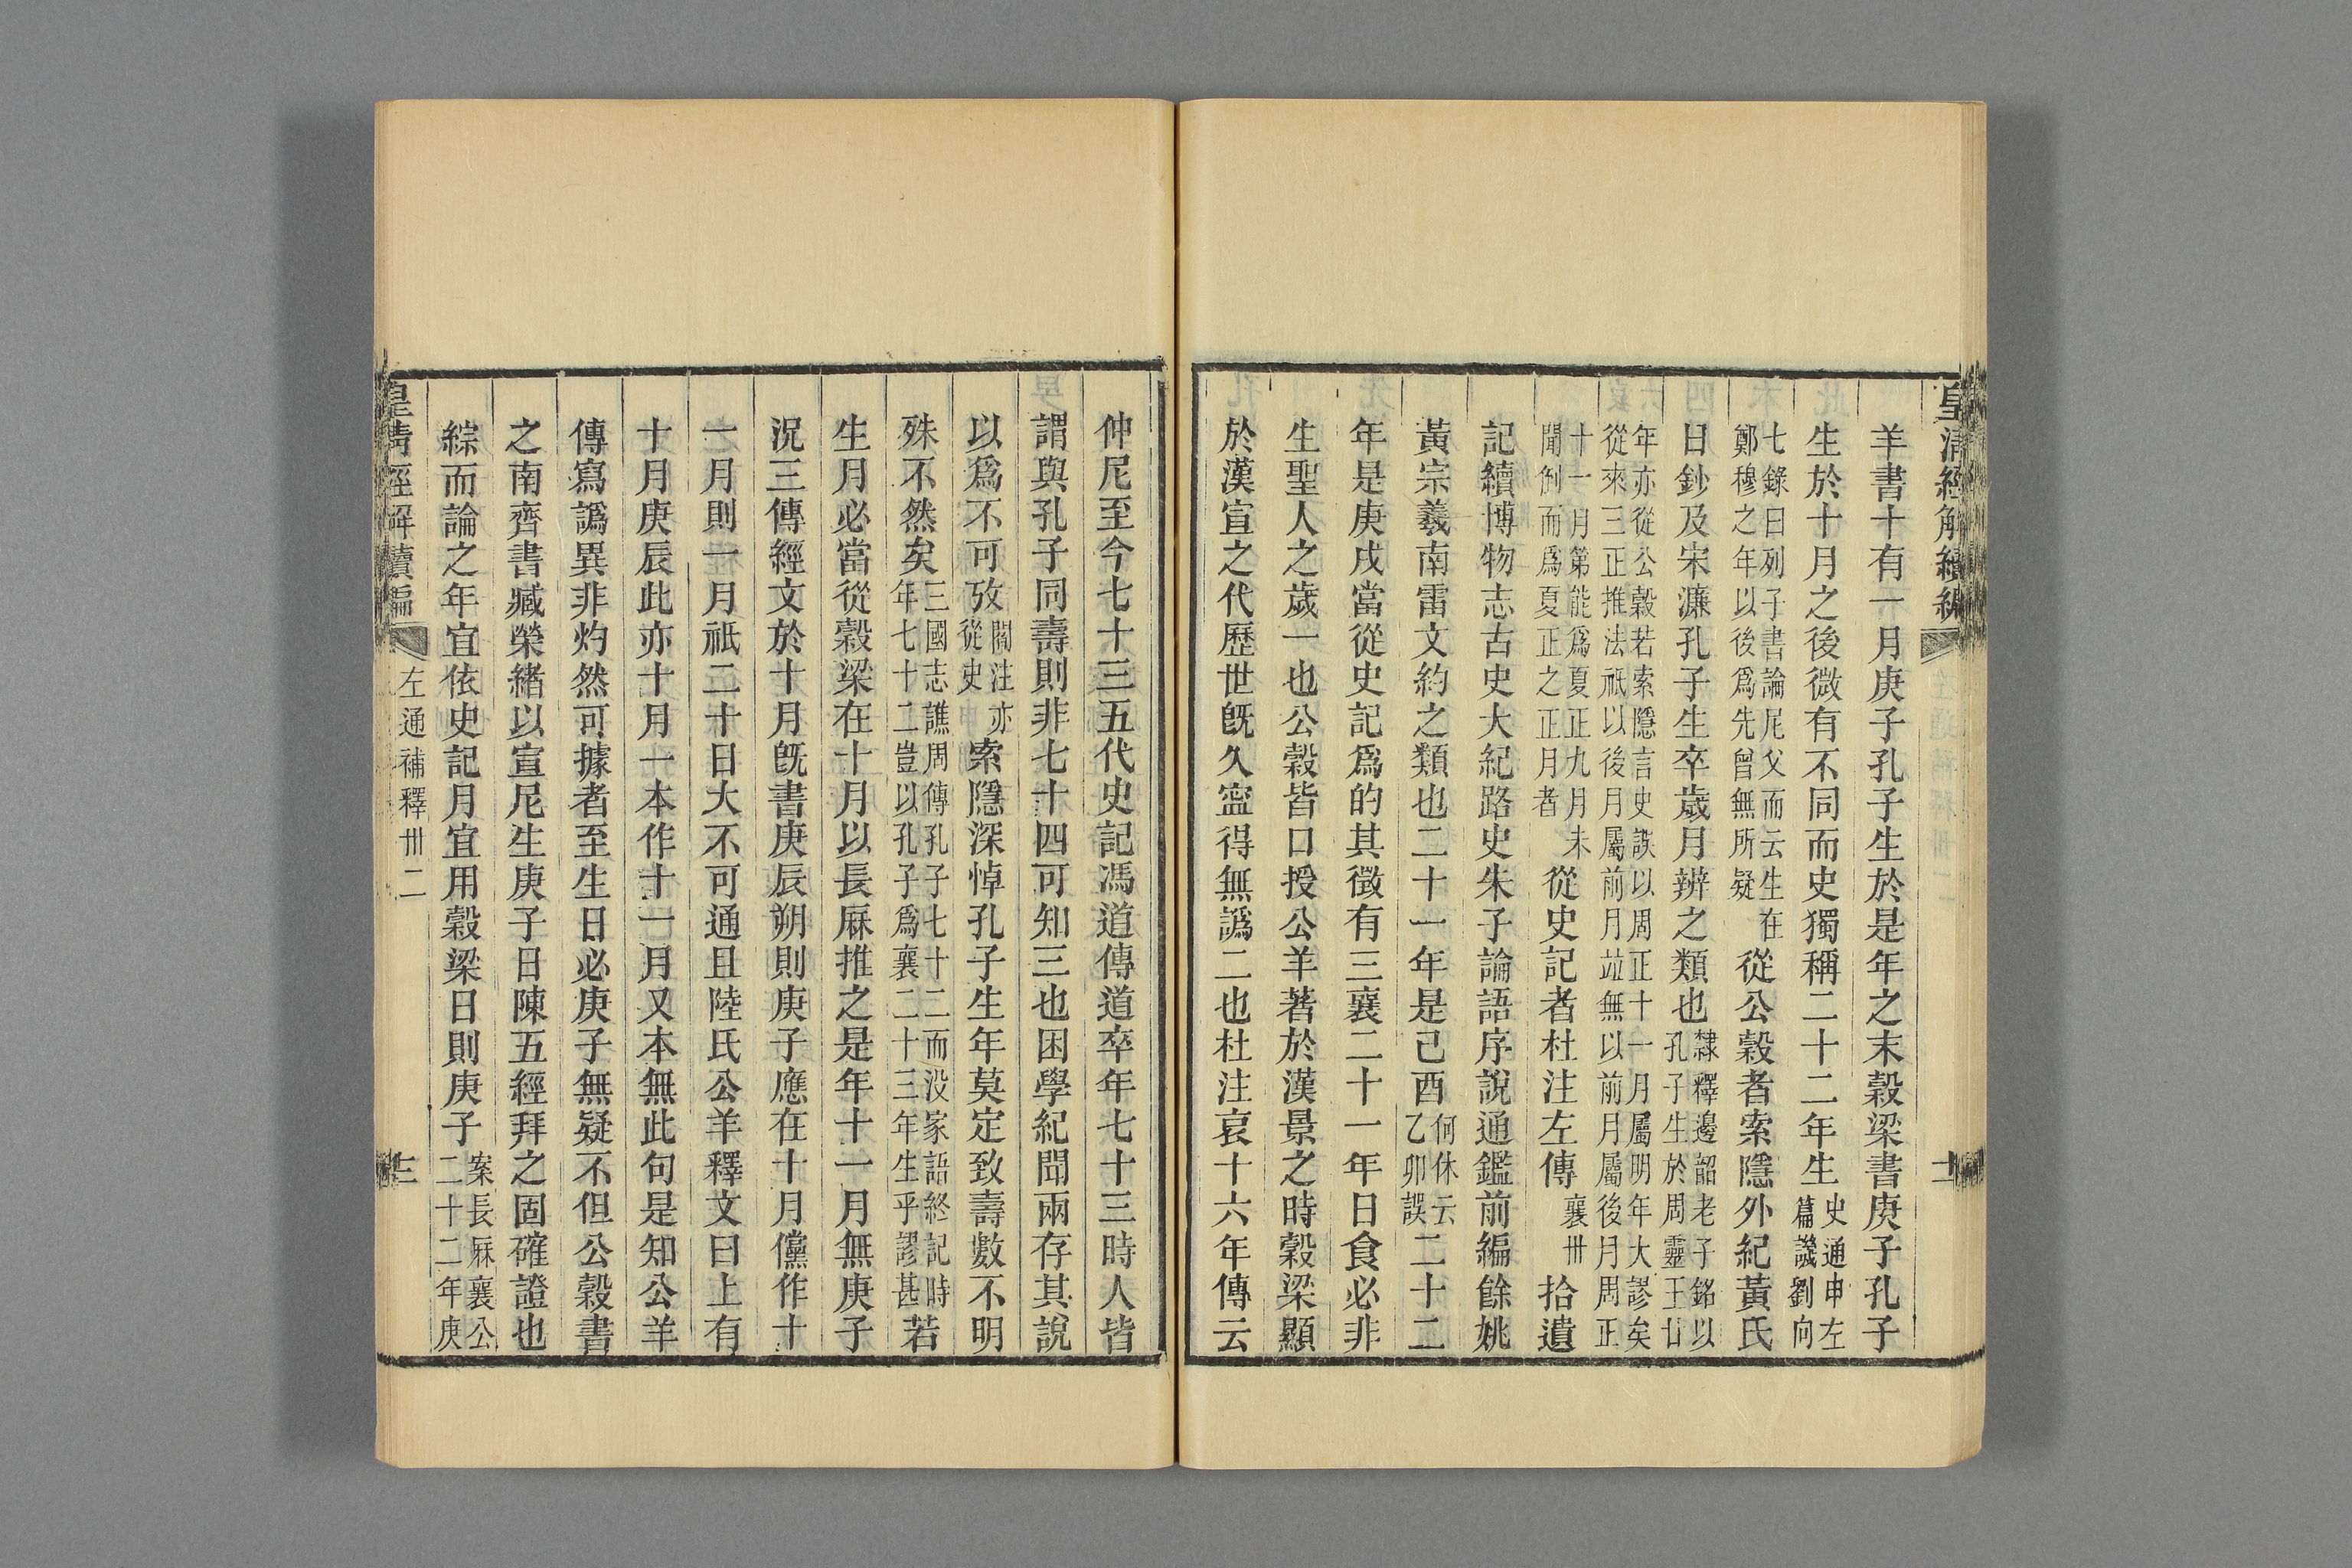 皇清經解續編
羊書十有一月庚子孔子生於是年之末穀梁書庚子孔子
生於十月之後微有不同而史獨稱二十二年生史通申左篇譏劉向
七錄曰列子書論尼父而云生在鄭穆之年以後爲先曾無所疑從公穀者索隱外紀黃氏
日鈔及宋濂孔子生卒歲月辨之類也隸釋邊韶老子銘以孔子生於周靈王廿
年亦從公穀若索隱言史誤以周正十一月屬明年大謬矣從來三正推法祇以後月屬前月竝無以前月屬後月周正
十一月第能爲夏正九月未聞倒而爲夏正之正月者從史記者杜注左傳襄卅拾遺
記續博物志古史大紀路史朱子論語序說通鑑前編餘姚
黃宗羲南雷文約之類也二十一年是己酉何休云乙卯誤二十二
年是庚戌當從史記爲的其徵有三襄二十一年日食必非
生聖人之歲一也公穀皆口授公羊著於漢景之時穀梁顯
於漢宣之代歷世旣久寍得無譌二也杜注哀十六年傳云
仲尼至今七十三五代史記馮道傳道卒年七十三時人皆
謂與孔子同壽則非七十四可知三也困學紀聞兩存其說
以爲不可攷閻注亦從史索隱深悼孔子生年莫定致壽數不明
殊不然矣三國志譙周傳孔子七十二而没家語終記時年七十二豈以孔子爲襄二十三年生乎謬甚若
生月必當從穀梁在十月以長厤推之是年十一月無庚子
況三傳經文於十月旣書庚辰朔則庚子應在十月儻作十
一月則一月祇二十日大不可通且陸氏公羊釋文曰上有
十月庚辰此亦十月一本作十一月又本無此句是知公羊
傳寫譌異非灼然可據者至生日必庚子無疑不但公穀書
之南齊書臧榮緒以宣尼生庚子日陳五經拜之固確證也
綜而論之年宜依史記月宜用穀梁日則庚子案長厤襄公二十二年庚
皇清經解續編 左通補釋卅二